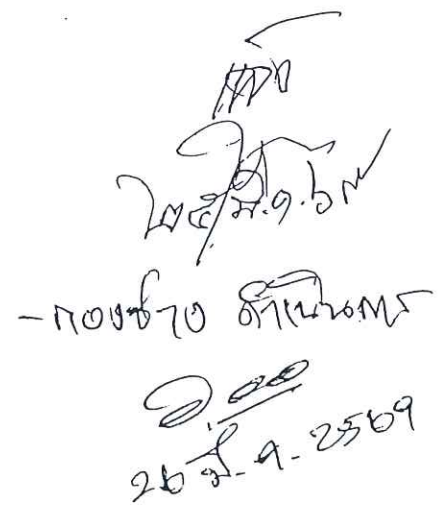 แจ้ง
๒๕ มี.ค. ๖๙
- กองช่าง ดำเนินการ
26 มี.ค. 2569